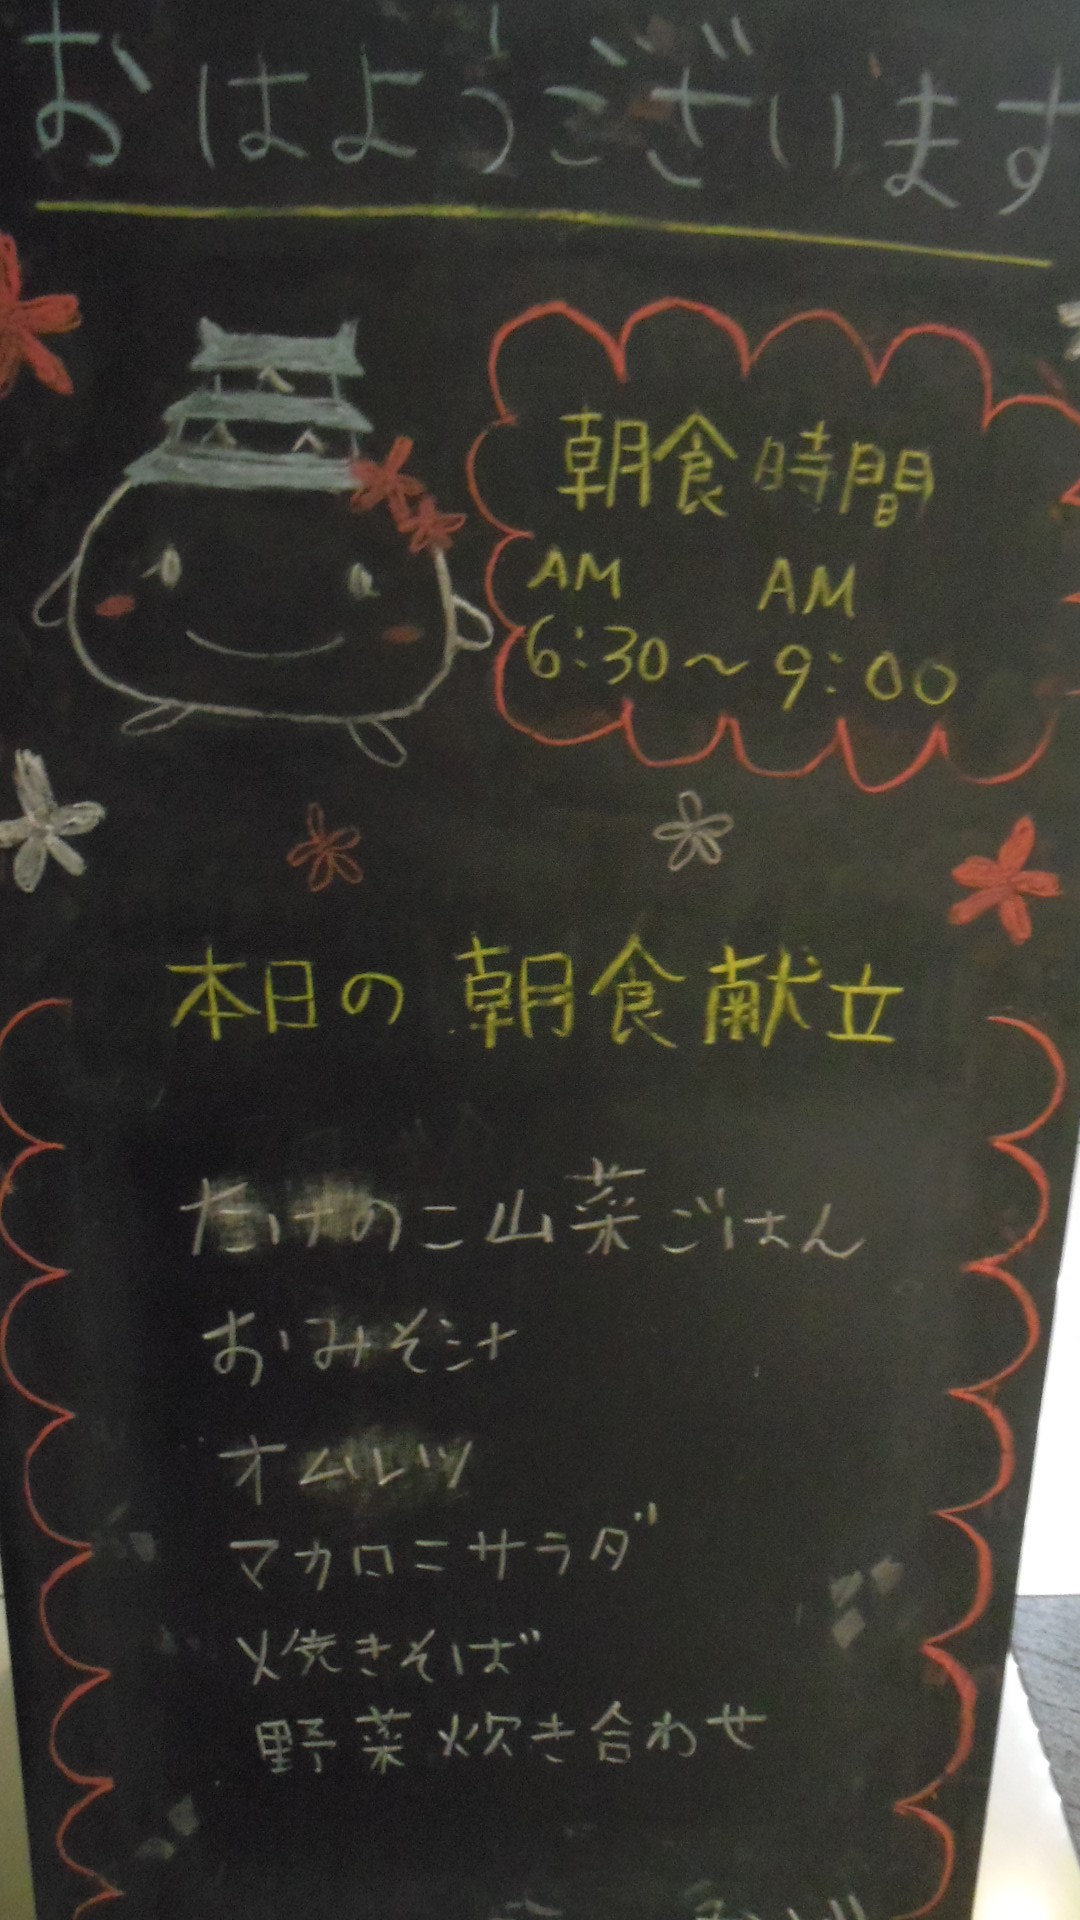 おはようございます
朝食時間
AM AM
6:30～9:00
本日の朝食献立
たけのこ山菜ごはん
おみそ汁
オムレツ
マカロニサラダ
焼きそば
野菜炊き合わせ